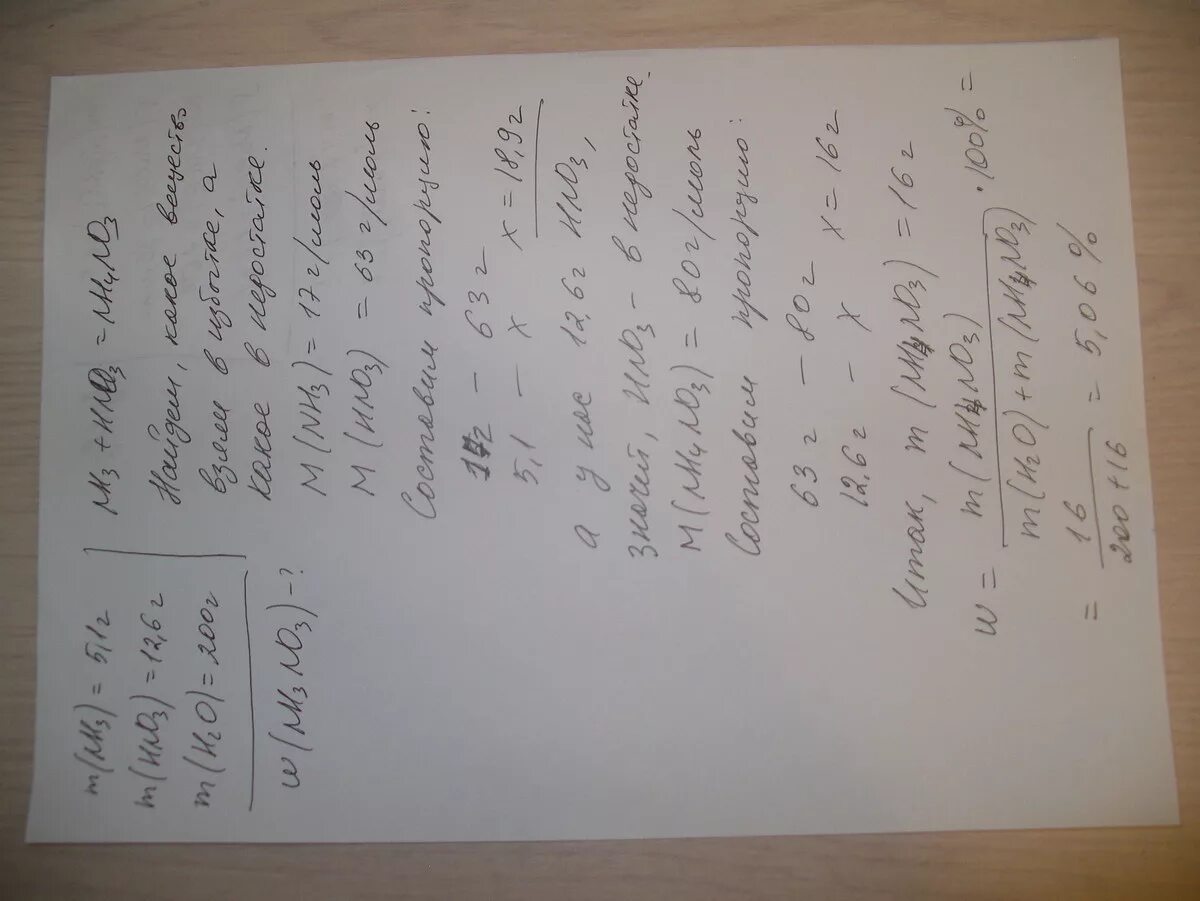 m(NH3) = 5,1г
m(HNO3) = 12,6г
m(H2O) = 200г
w(NH3NO3) - ?
NH3 + HNO3 = NH4NO3
Найдем, какое вещество
взяли в избытке, а
какое в недостатке.
M(NH3) = 17 г/моль
M(HNO3) = 63 г/моль
Составим пропорцию:
17г - 63г
5,1 - x x = 18,9г
а у нас 12,6г HNO3,
значит, HNO3 - в недостатке.
M(NH4NO3) = 80 г/моль
Составим пропорцию:
63г - 80г
12,6г - x x = 16г
Итак, m(NH4NO3) = 16г
w = m(NH4NO3) / m(H2O) + m(NH4NO3) · 100% =
= 16 / 200 + 16 = 5,06%